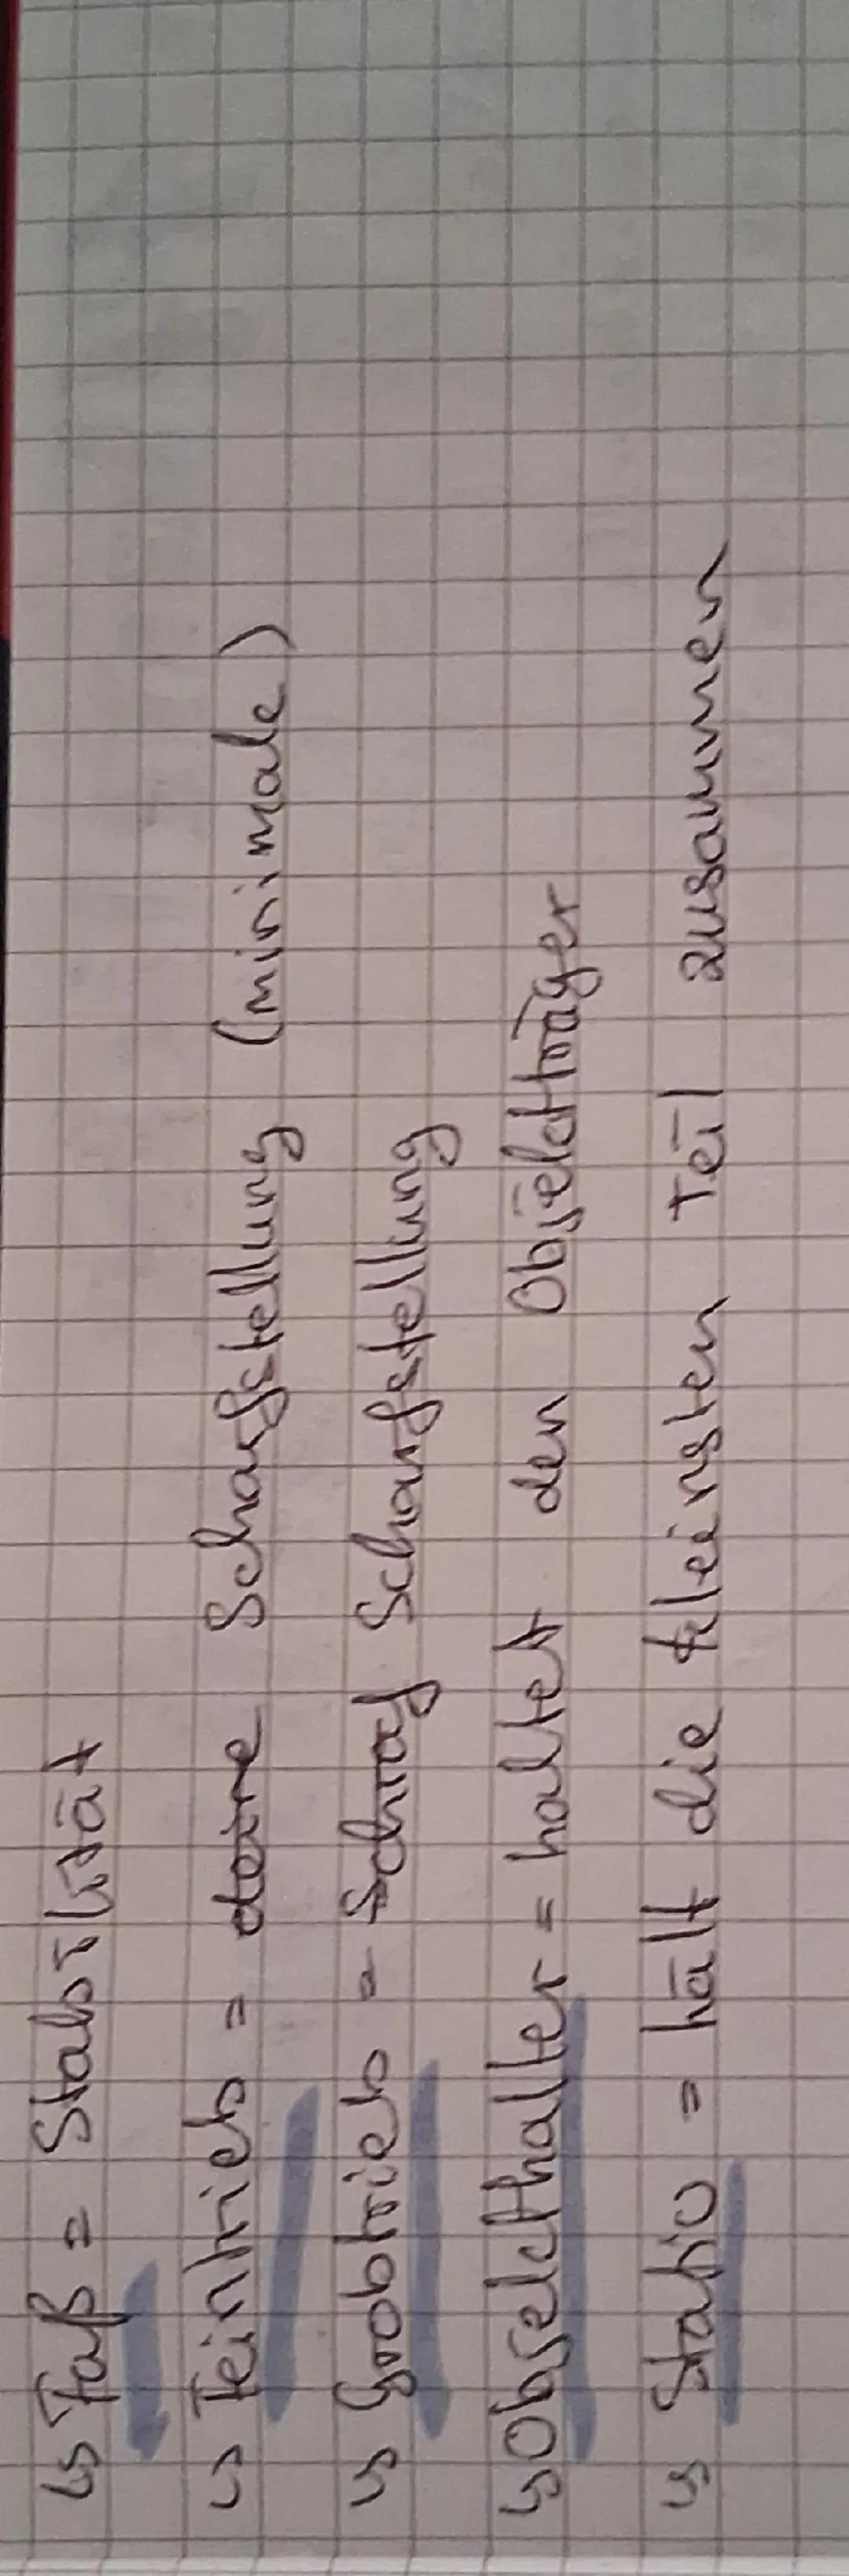 ↳ Faß = Stabilität
↳ Feintrieb = deine Scharfstellung (minimale)
↳ Grobtrieb = Schraf Scharfstellung
↳ Objekthalter = haltet den Objektträger
↳ Stativ = hält die kleinsten Teil zusammen